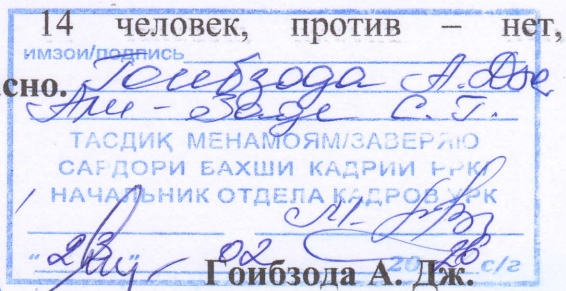 14 человек, против – нет,
имзои/подпись
сно. Гоибзода А. Дж.
Али-Заде С. Г.
ТАСДИҚ МЕНАМОЯМ/ЗАВЕРЯЮ
САРДОРИ БАХШИ КАДРИИ РРК/
НАЧАЛЬНИК ОТДЕЛА КАДРОВ УРК
"23" 02 2026 с/г
Гоибзода А. Дж.